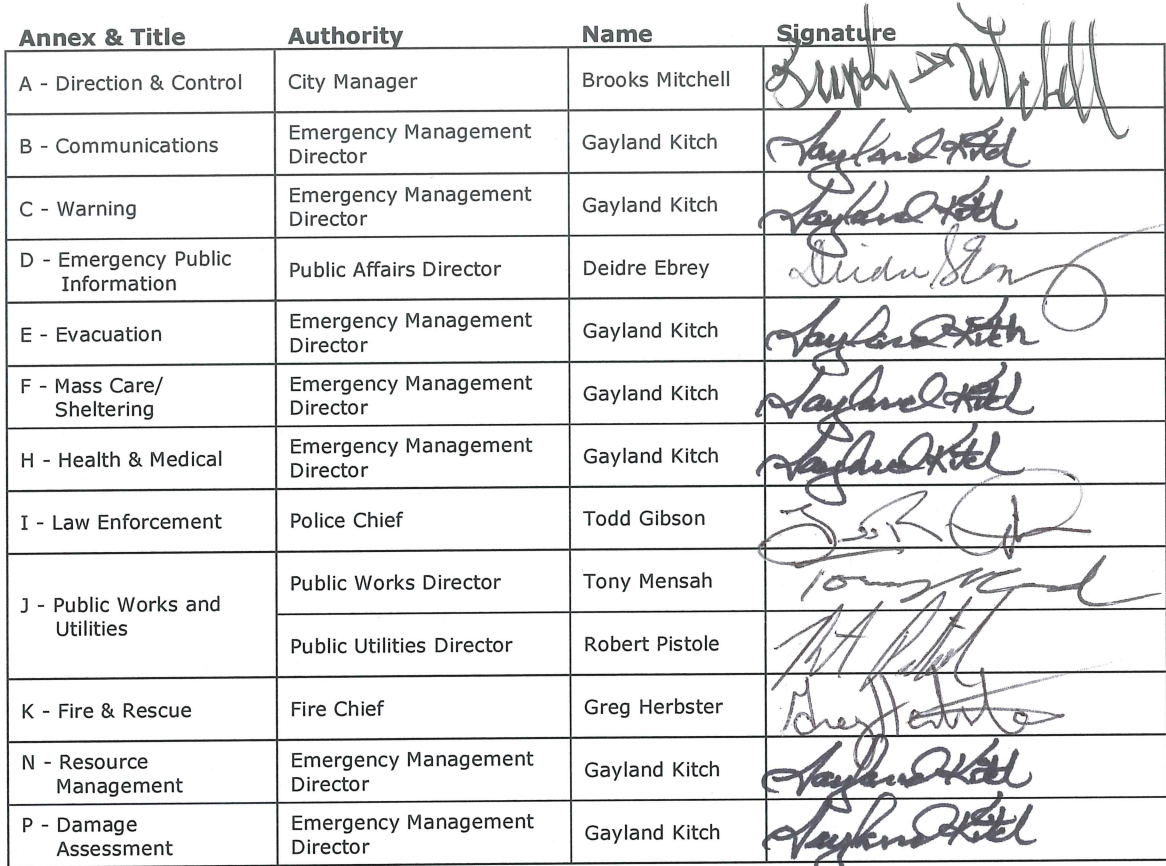 Annex & Title Authority Name Signature
A - Direction & Control City Manager Brooks Mitchell Brooks Mitchell
B - Communications Emergency Management Director Gayland Kitch Gayland Kitch
C - Warning Emergency Management Director Gayland Kitch Gayland Kitch
D - Emergency Public Information Public Affairs Director Deidre Ebrey Deidre Ebrey
E - Evacuation Emergency Management Director Gayland Kitch Gayland Kitch
F - Mass Care/ Sheltering Emergency Management Director Gayland Kitch Gayland Kitch
H - Health & Medical Emergency Management Director Gayland Kitch Gayland Kitch
I - Law Enforcement Police Chief Todd Gibson
J - Public Works and Utilities Public Works Director Tony Mensah
Public Utilities Director Robert Pistole
K - Fire & Rescue Fire Chief Greg Herbster Greg Herbster
N - Resource Management Emergency Management Director Gayland Kitch Gayland Kitch
P - Damage Assessment Emergency Management Director Gayland Kitch Gayland Kitch